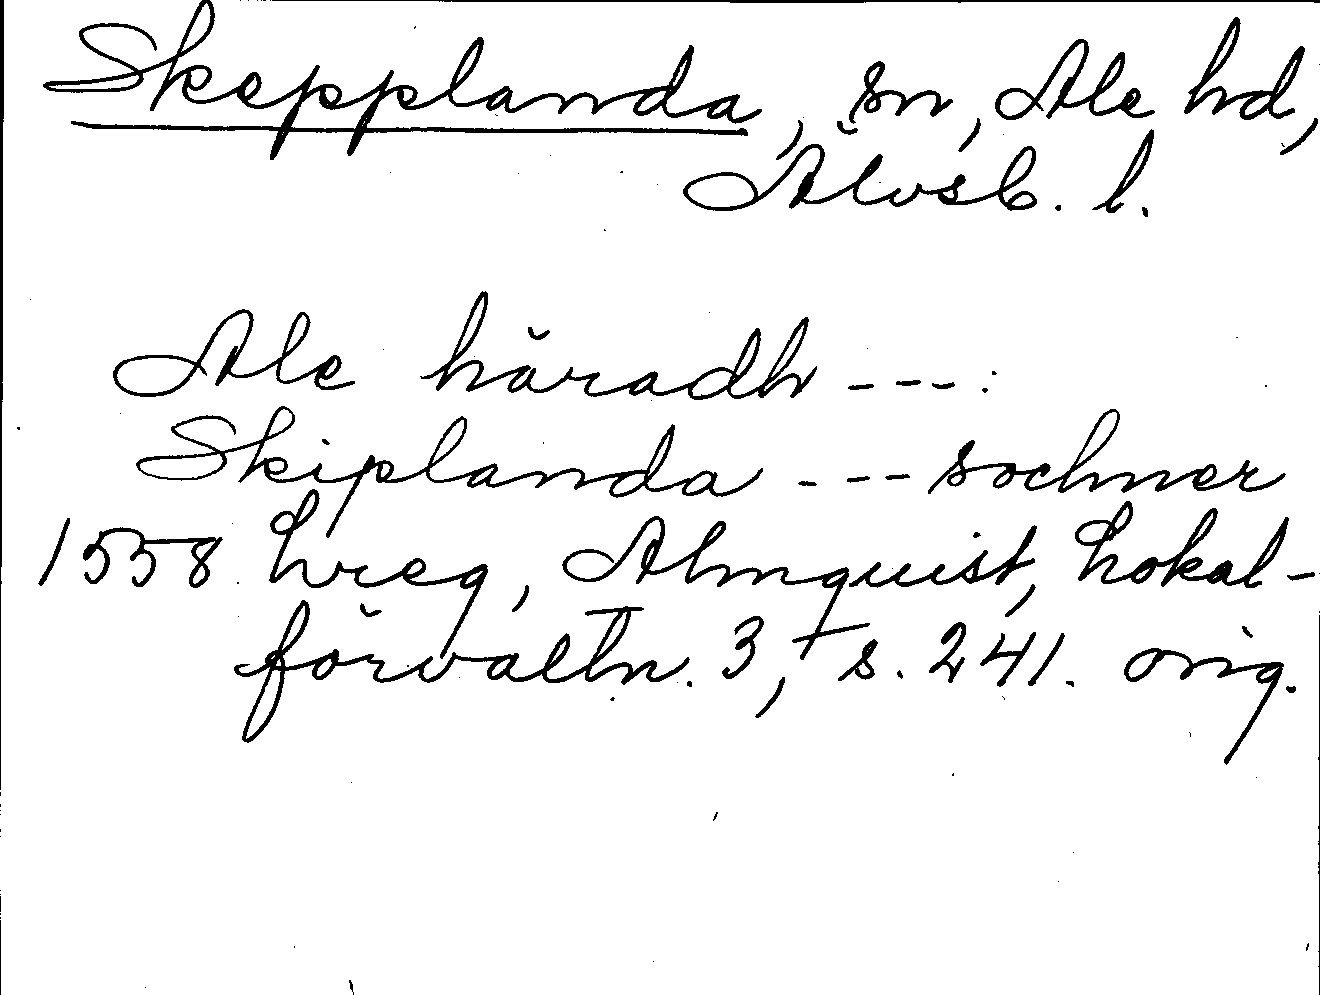 Skepplanda, sn, Ale hd,
Älvsb. l.
Ale häradh ---:
Skiplanda --- sochner
1558 Lreg, Almquist, Lokal-
förvaltn. 3, s. 241. orig.